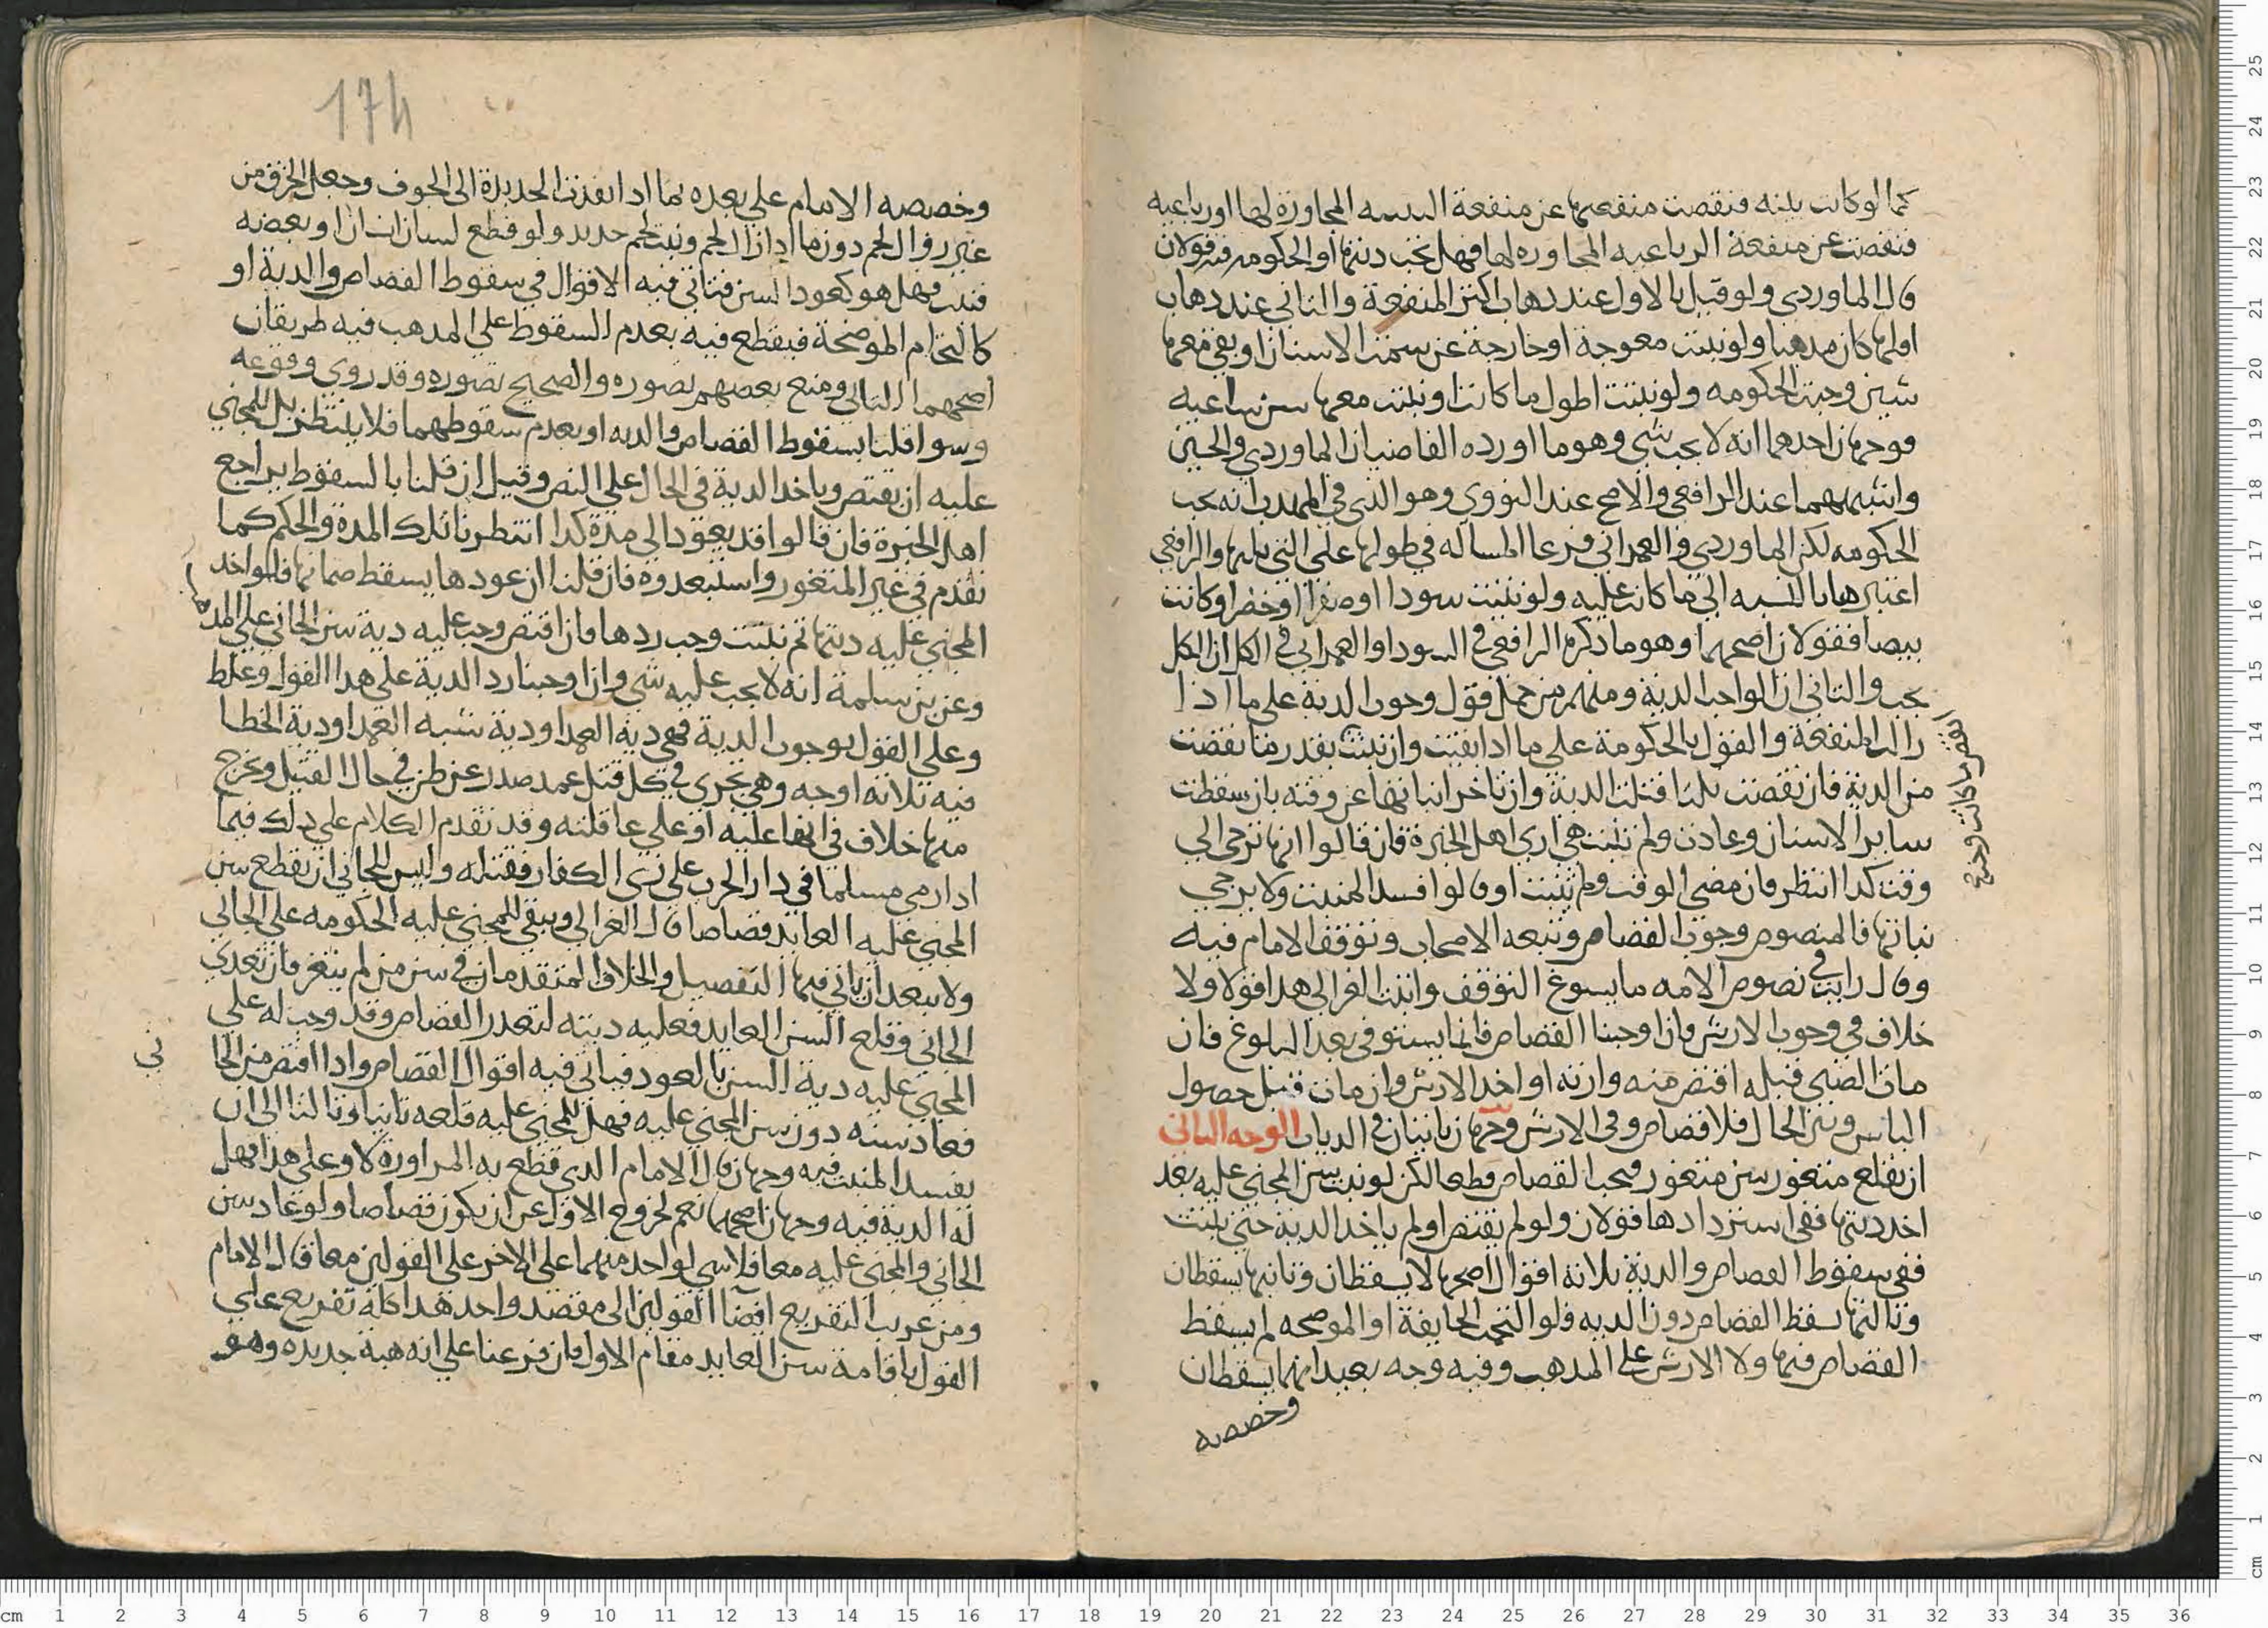 كما لو كانت ثنيه فنقصت منفعتها عن منفعة الثنيه المجاورة لها او رباعيه
فنقصت عن منفعة الرباعيه المجاوره لها فهل تجب ديتها او الحكومه فيه قولان
قال الماوردي ولو قيل بالاول عند ذهاب اكثر المنفعة والثاني عند ذهاب
اقلها كان مذهبا ولو نبتت معوجة او خارجة عن سمت الاسنان او بقي معها
شين وجبت الحكومه ولو نبتت اطول ما كانت او نبتت معها سن شاغيه
فوجهان احدهما انه لا يجب شي وهو ما اورده القاضيان الماوردي والحسين
واشبههما عند الرافعي والاصح عند النووي وهو الذي في المهذب انه تجب
الحكومه لكن الماوردي والعمراني فرعا المسأله في طولها على التي تليها والرافعي
اعتبرها بالنسبه الى ما كانت عليه ولو نبتت سودا او صفرا او خضرا وكانت
بيضا فقولان اصحهما وهو ما ذكره الرافعي في السودا والعمراني في الكل ان الكل
يجب والثاني ان الواجب الدية ومنهم من حمل قول وجوب الدية على ما اذا
زالت المنفعة والقول بالحكومة على ما اذا بقيت وان نبتت بقدر ما نقصت
من الدية فان نقصت ثلثا فثلث الدية وان تاخر انباتها عن وقته بان سقطت
ساير الاسنان وعادت ولم تنبت هي اري اهل الخبرة فان قالوا انها ترجى الى
وقت كذا انتظر فان مضى الوقت ولم تنبت او قالوا فسد المنبت ولا يرجي
نباتها فالمنصوص وجوب القصاص وتبعه الاصحاب وتوقف الامام فيه
وقال رايت في نصوص الامه ما يسوغ التوقف واثبت الغزالي هذا قولا ولا
خلاف في وجوب الارش فان اوجبنا القصاص فانما يستوفى بعد البلوغ فان
مات الصبي قبله اقتص منه وارثه او اخذ الارش وان مات قبل حصول
الياس وتبين الحال فلا قصاص وفي الارش وجهان ياتيان في الديات الوجه الثاني
ان يقلع مثغور سن مثغور فيجب القصاص قطعا لكن لو نبتت سن المجني عليه بعد
اخذ ديتها ففي استردادها قولان ولو لم يقتص او لم ياخذ الدية حتى نبتت
ففي سقوط القصاص والدية ثلاثه اقوال اصحها لا يسقطان وثانيها يسقطان
وثالثها يسقط القصاص دون الديه فلو التحمت الجايفة او الموضحه لم يسقط
القصاص فيها ولا الارش على المذهب وفيه وجه بعيد انهما يسقطان
وخصصه
انقص ما كانت وجب
174
وخصصه الامام علي بعده بما اذا نفذت الحديدة الى الجوف وحصل الخرق من
غير زوال لحم دون ما اذا زال لحم ونبت لحم جديد ولو قطع لسان انسان او بعضه
فنبت فهل هو كعود السن فتاتي فيه الاقوال في سقوط القصاص والدية او
كالتحام الموضحة فيقطع فيه بعدم السقوط علي المذهب فيه طريقان
اصحهما الثاني ومنع بعضهم تصوره والصحيح تصوره وقد روي وقوعه
وسوا قلنا بسقوط القصاص والديه او بعدم سقوطهما فلا ينتظر بل للمجني
عليه ان يقتص وياخذ الدية في الحال على النص وقيل ان قلنا بالسقوط يراجع
اهل الخبرة فان قالوا قد يعود الى مدة كذا انتظرنا تلك المدة والحكم كما
تقدم في غير المثغور واستبعدوه فان قلنا ان عودها يسقط ضمانها فلو اخذ
المجني عليه ديتها ثم نبتت وجب ردها وان اقتص وجب عليه دية سن الجاني علي المذهب
وعن بن سلمة انه لا يجب عليه شي وان اوجبنا رد الدية على هذا القول وغلط
وعلي القول بوجوب الدية فهي دية العمد او دية شبه العمد او دية الخطا
فيه ثلاثه اوجه وهي تجري في كل قتل عمد صدر عن ظن في حال القتيل وتخرج
منها خلاف في انها عليه او على عاقلته وقد تقدم الكلام علي ذلك فيما
اذا رمى مسلما في دار الحرب على زي الكفار فقتله وليس للجاني ان يقطع سن
المجني عليه العايد قصاصا قال الغزالي ويبقى للمجني عليه الحكومه على الجاني
ولا يبعد ان ياتي فيها التفصيل والخلاف المتقدمان في سن من لم يثغر فان تعدي
الجاني وقلع السن العايد فعليه ديته لتعذر القصاص وقد وجب له على
المجني عليه دية السن بالعود فياتي فيه اقوال القصاص واذا اقتص من الجا
ني
فعاد سنه دون سن المجني عليه فهل للمجني عليه قلعه ثانيا وثالثا الى ان
يفسد المنبت فيه وجهان قال الامام الذي قطع به المراوزة لا وعلى هذا فهل
له الدية فيه وجهان اصحهما نعم لخروج الاول عن ان يكون قصاصا ولو عاد سن
الجاني والمجني عليه معا فلا شي لواحد منهما على الاخر على القولين معا قال الامام
ومن غريب التفريع افضا القولين الى مقصد واحد هذا كله تفريع علي
القول باقامة سن العايد مقام الاول فان فرعنا علي انه هبة جديده وهو